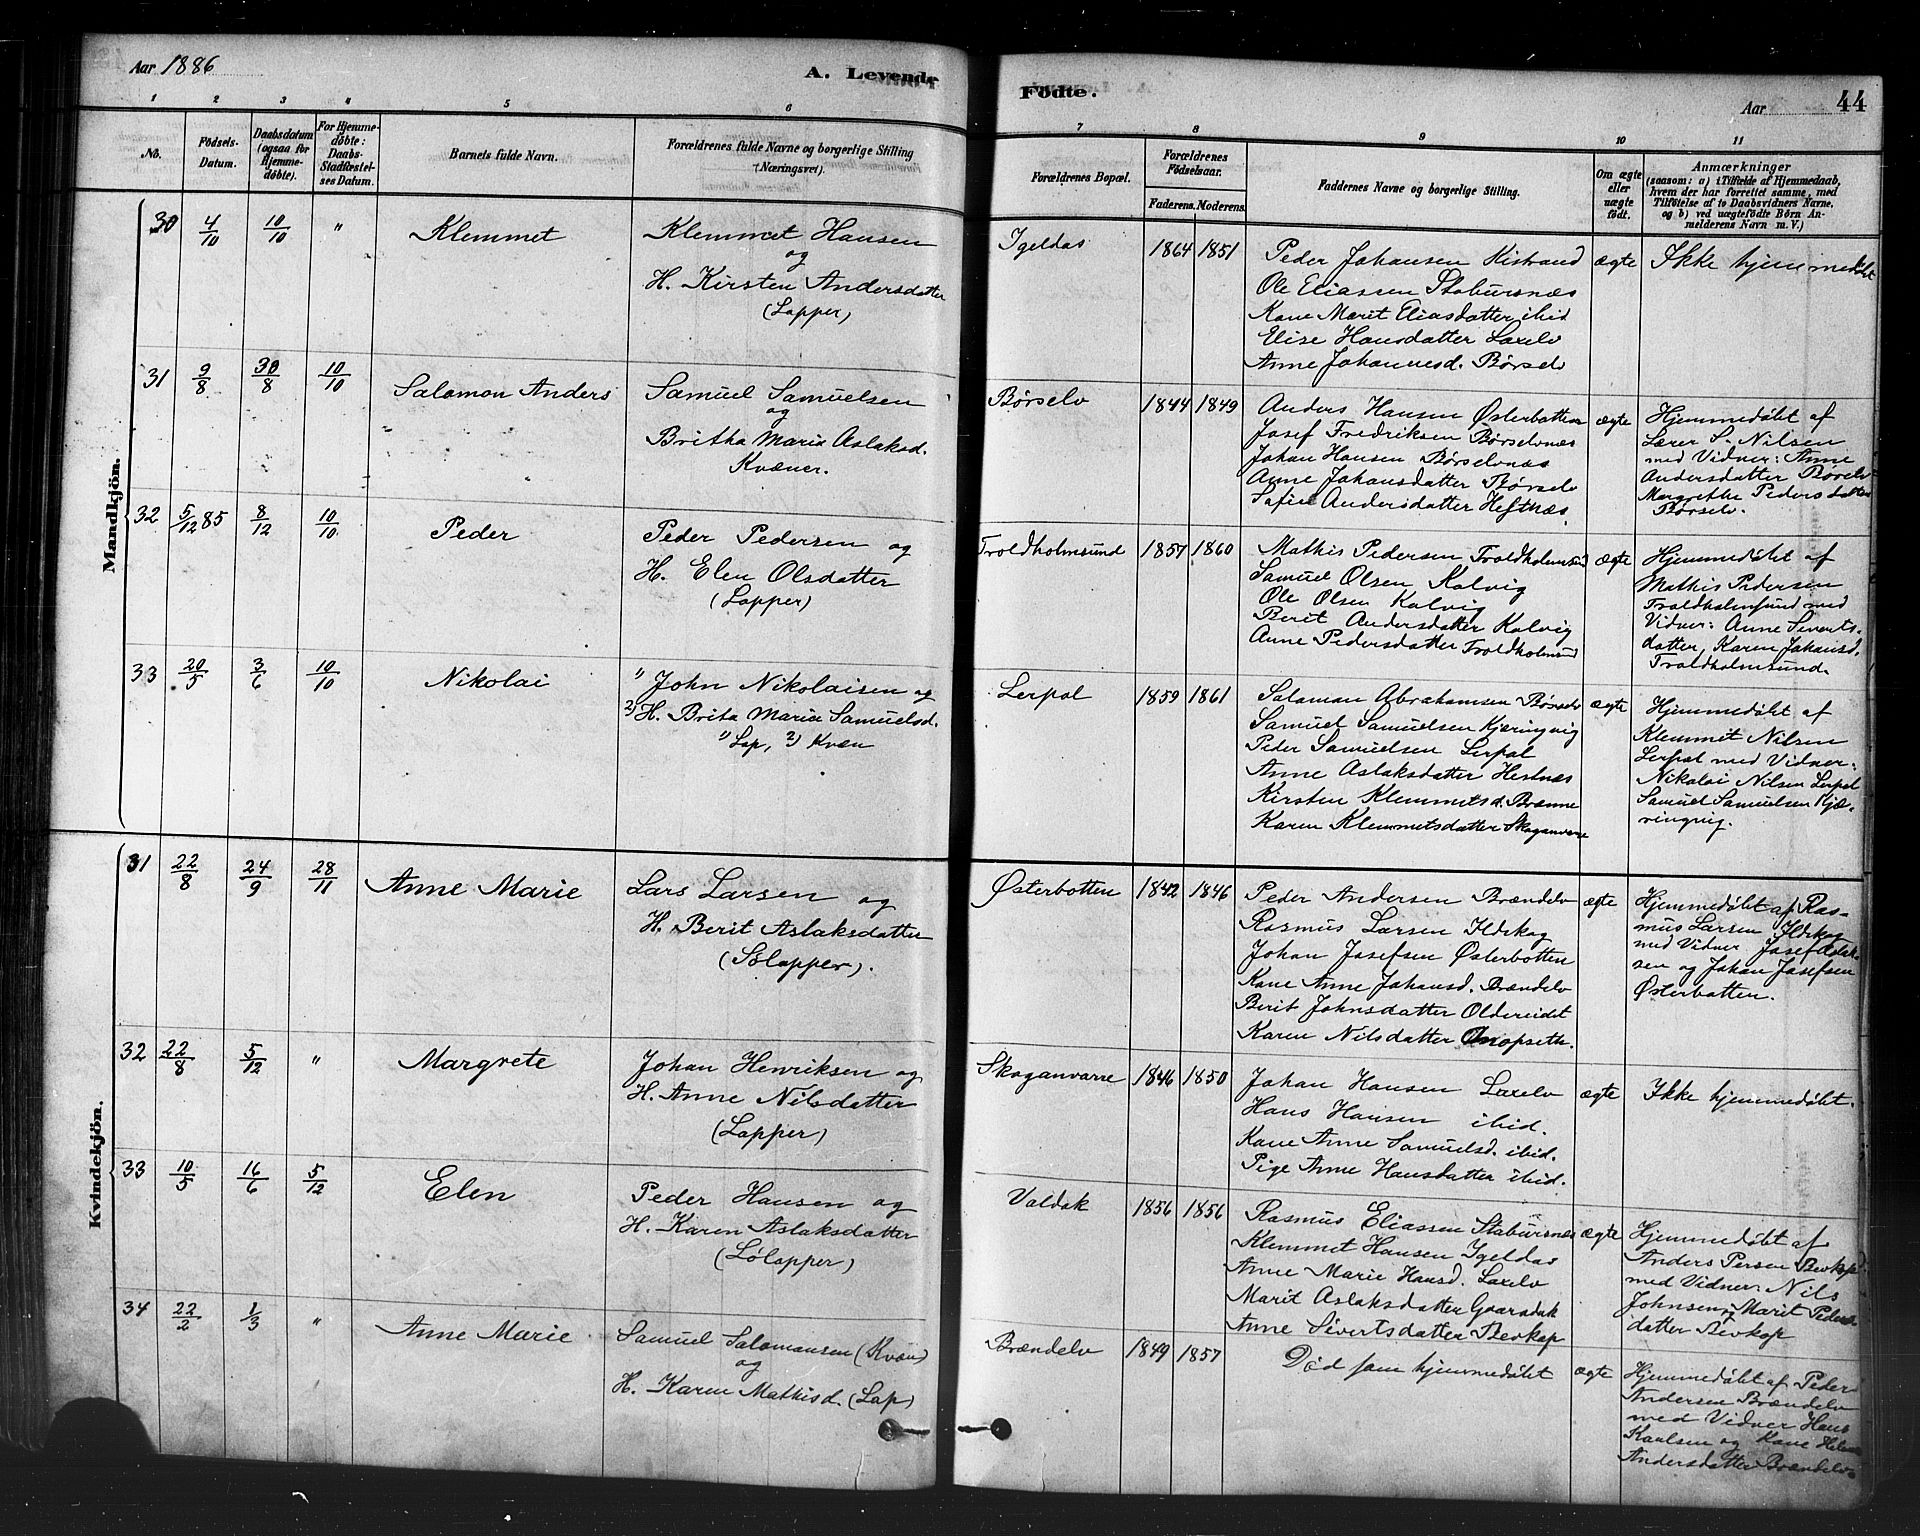 Aar 1886
A. Levende
Födte.
Aar
44
1 2 3 4 5 6
7 8 9 10 11
No.
Födsels-
Datum.
Daabsdatum
(ogsaa for
Hjemme-
döbte).
For Hjemme-
döbte:
Daabs-
Stadfæstel-
ses Datum.
Barnets fulde Navn.
Forældrenes fulde Navne og borgerlige Stilling
(Næringsvei).
Forældrenes Bopæl.
Forældrenes
Födselsaar.
Faderens. Moderens.
Faddernes Navne og borgerlige Stilling.
Om ægte
eller
uægte
födt.
Anmærkninger
(saasom: a) i Tilfælde af Hjemmedaab,
hvem der har forrettet samme, med
Tilföielse af to Daabsvidners Navne,
og b) ved uægtefödte Börn An-
melderens Navn m. V.)
Mandkjön.
30 4/10 10/10 " Klemmet
Klemmet Hansen
og
H. Kirsten Andersdatter
(Lapper)
Igeldas 1864 1851
Peder Johansen Kistrand
Ole Eliassen Stabursnæs
Kone Marit Eliasdatter ibid
Elise Hansdatter Laxelv
Anne Johannesd. Børselv
ægte
Ikke hjemmedøbt
31 9/8 30/8 10/10 Salomon Anders
Samuel Samuelsen
og
Britha Maria Aslaksd.
Kvæner.
Børselv 1844 1849
Anders Hansen Østerbotten
Josef Fredriksen Børselvnæs
Johan Hansen Børselvnæs
Anne Johansdatter Børselv
Sofie Andersdatter Hestnæs
ægte
Hjemmedøbt af
Lærer S. Nilsen
med Vidner: Anne
Andersdatter Børselv
Margrethe Pedersdatter
Børselv.
32 5/12 85 8/12 10/10 Peder
Peder Pedersen og
H. Elen Olsdatter
(Lapper)
Troldholmsund 1857 1860
Mathis Pedersen Troldholmsund
Samuel Olsen Kolvig
Ole Olsen Kolvig
Berit Andersdatter Kolvig
Anne Pedersdatter Troldholmsund
ægte
Hjemmedøbt af
Mathis Pedersen
Troldholmsund med
Vidner: Anne Siverts-
datter, Karen Johansd.
Troldholmsund.
33 20/5 3/6 10/10 Nikolai
1) John Nikolaisen og
2) H. Brita Maria Samuelsd.
1) Lap, 2) Kvæn
Lerpol 1859 1861
Salomon Abrahamsen Børselv
Samuel Samuelsen Kjæringvig
Peder Samuelsen Lerpol
Anne Aslaksdatter Hestnæs
Kirsten Klemmetsd. Brenne
Karen Klemmetsdatter Skoganvarre
ægte
Hjemmedøbt af
Klemmet Nilsen
Lerpol med Vidner:
Nikolai Nilsen Lerpol
Samuel Samuelsen Kjæ-
ringvig.
Kvindekjön.
31 22/8 24/9 28/11 Anne Marie
Lars Larsen og
H. Berit Aslaksdatter
(Sølapper).
Østerbotten 1842 1846
Peder Andersen Brændelv
Rasmus Larsen Ildskog
Johan Josefsen Østerbotten
Kone Anne Johansd. Brændelv
Berit Johnsdatter Oldereidet
Karen Nilsdatter
ægte
Hjemmedøbt af Ras-
mus Larsen Ildskog
med Vidner Josef Aslak-
sen og Johan Josefsen
Østerbotten.
32 22/8 5/12 " Margrete
Johan Henriksen og
H. Anne Nilsdatter
(Lapper)
Skoganvarre 1846 1850
Johan Hansen Laxelv
Hans Hansen ibid.
Kone Anne Samuelsd. ibid.
Pige Anne Hansdatter ibid.
ægte
Ikke hjemmedøbt.
33 10/5 16/6 5/12 Elen
Peder Hansen og
H. Karen Aslaksdatter
(Sølapper)
Valdak 1856 1856
Rasmus Eliassen Stabursnæs
Klemmet Hansen Igeldas
Anne Marie Hansd. Laxelv
Marit Aslaksdatter Goaradak
Anne Sivertsdatter Bevkop
ægte
Hjemmedøbt af
Anders Persen Bevkop
med Vidner: Nils
Johnsen, Marit Peders-
datter Bevkop
34 22/2 1/3 " Anne Marie
Samuel Salomonsen (Kvæn)
og
H. Karen Mathisd. (Lap)
Brændelv 1849 1857
Død som hjemmedøbt
ægte
Hjemmedøbt af Peder
Andersen Brændelv
med Vidner Hans
Karlsen og Kone
Andersdatter Brændelv